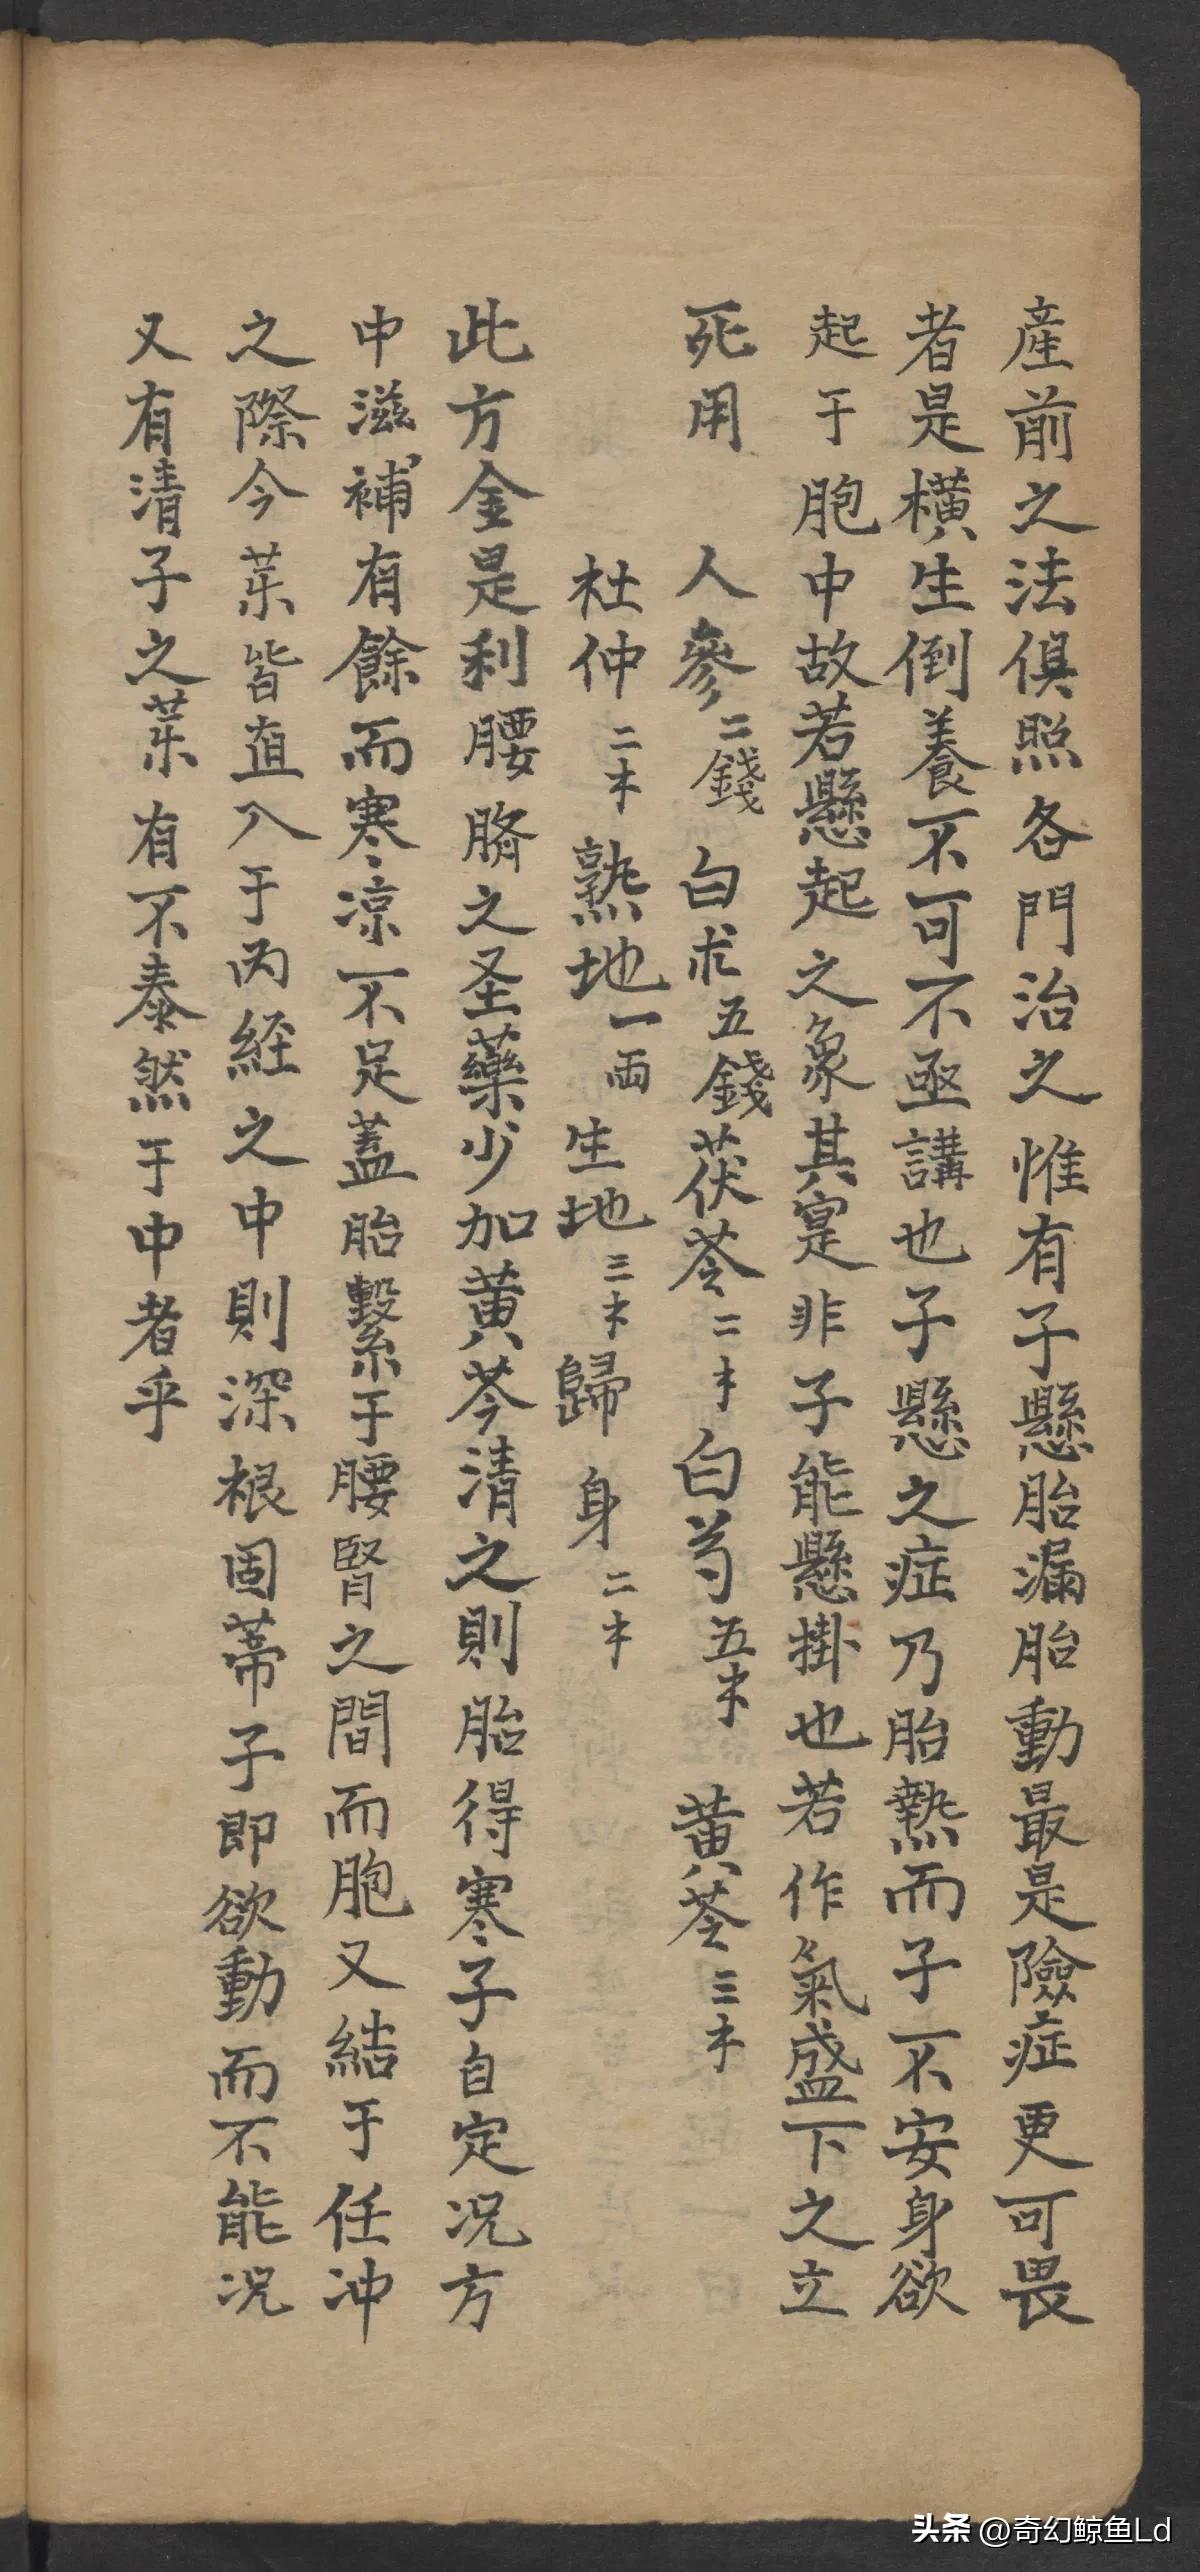 產前之法俱照各門治之惟有子懸胎漏胎動最是險症更可畏
者是橫生倒養不可不亟講也子懸之症乃胎熱而子不安身欲
起于胞中故若懸起之象其寔非子能懸掛也若作氣盛下之立
死用 人參二錢 白朮五錢 茯苓二木 白芍五木 黄芩三木
杜仲二木 熟地一両 生地三木 歸身二木
此方金是利腰臍之圣藥少加黄芩清之則胎得寒子自定况方
中滋補有餘而寒凉不足蓋胎繫于腰腎之間而胞又結于任冲
之際今茱皆直入于丙経之中則深根固蒂子即欲動而不能况
又有清子之茱有不泰然于中者乎
头条 @奇幻鲸鱼Ld